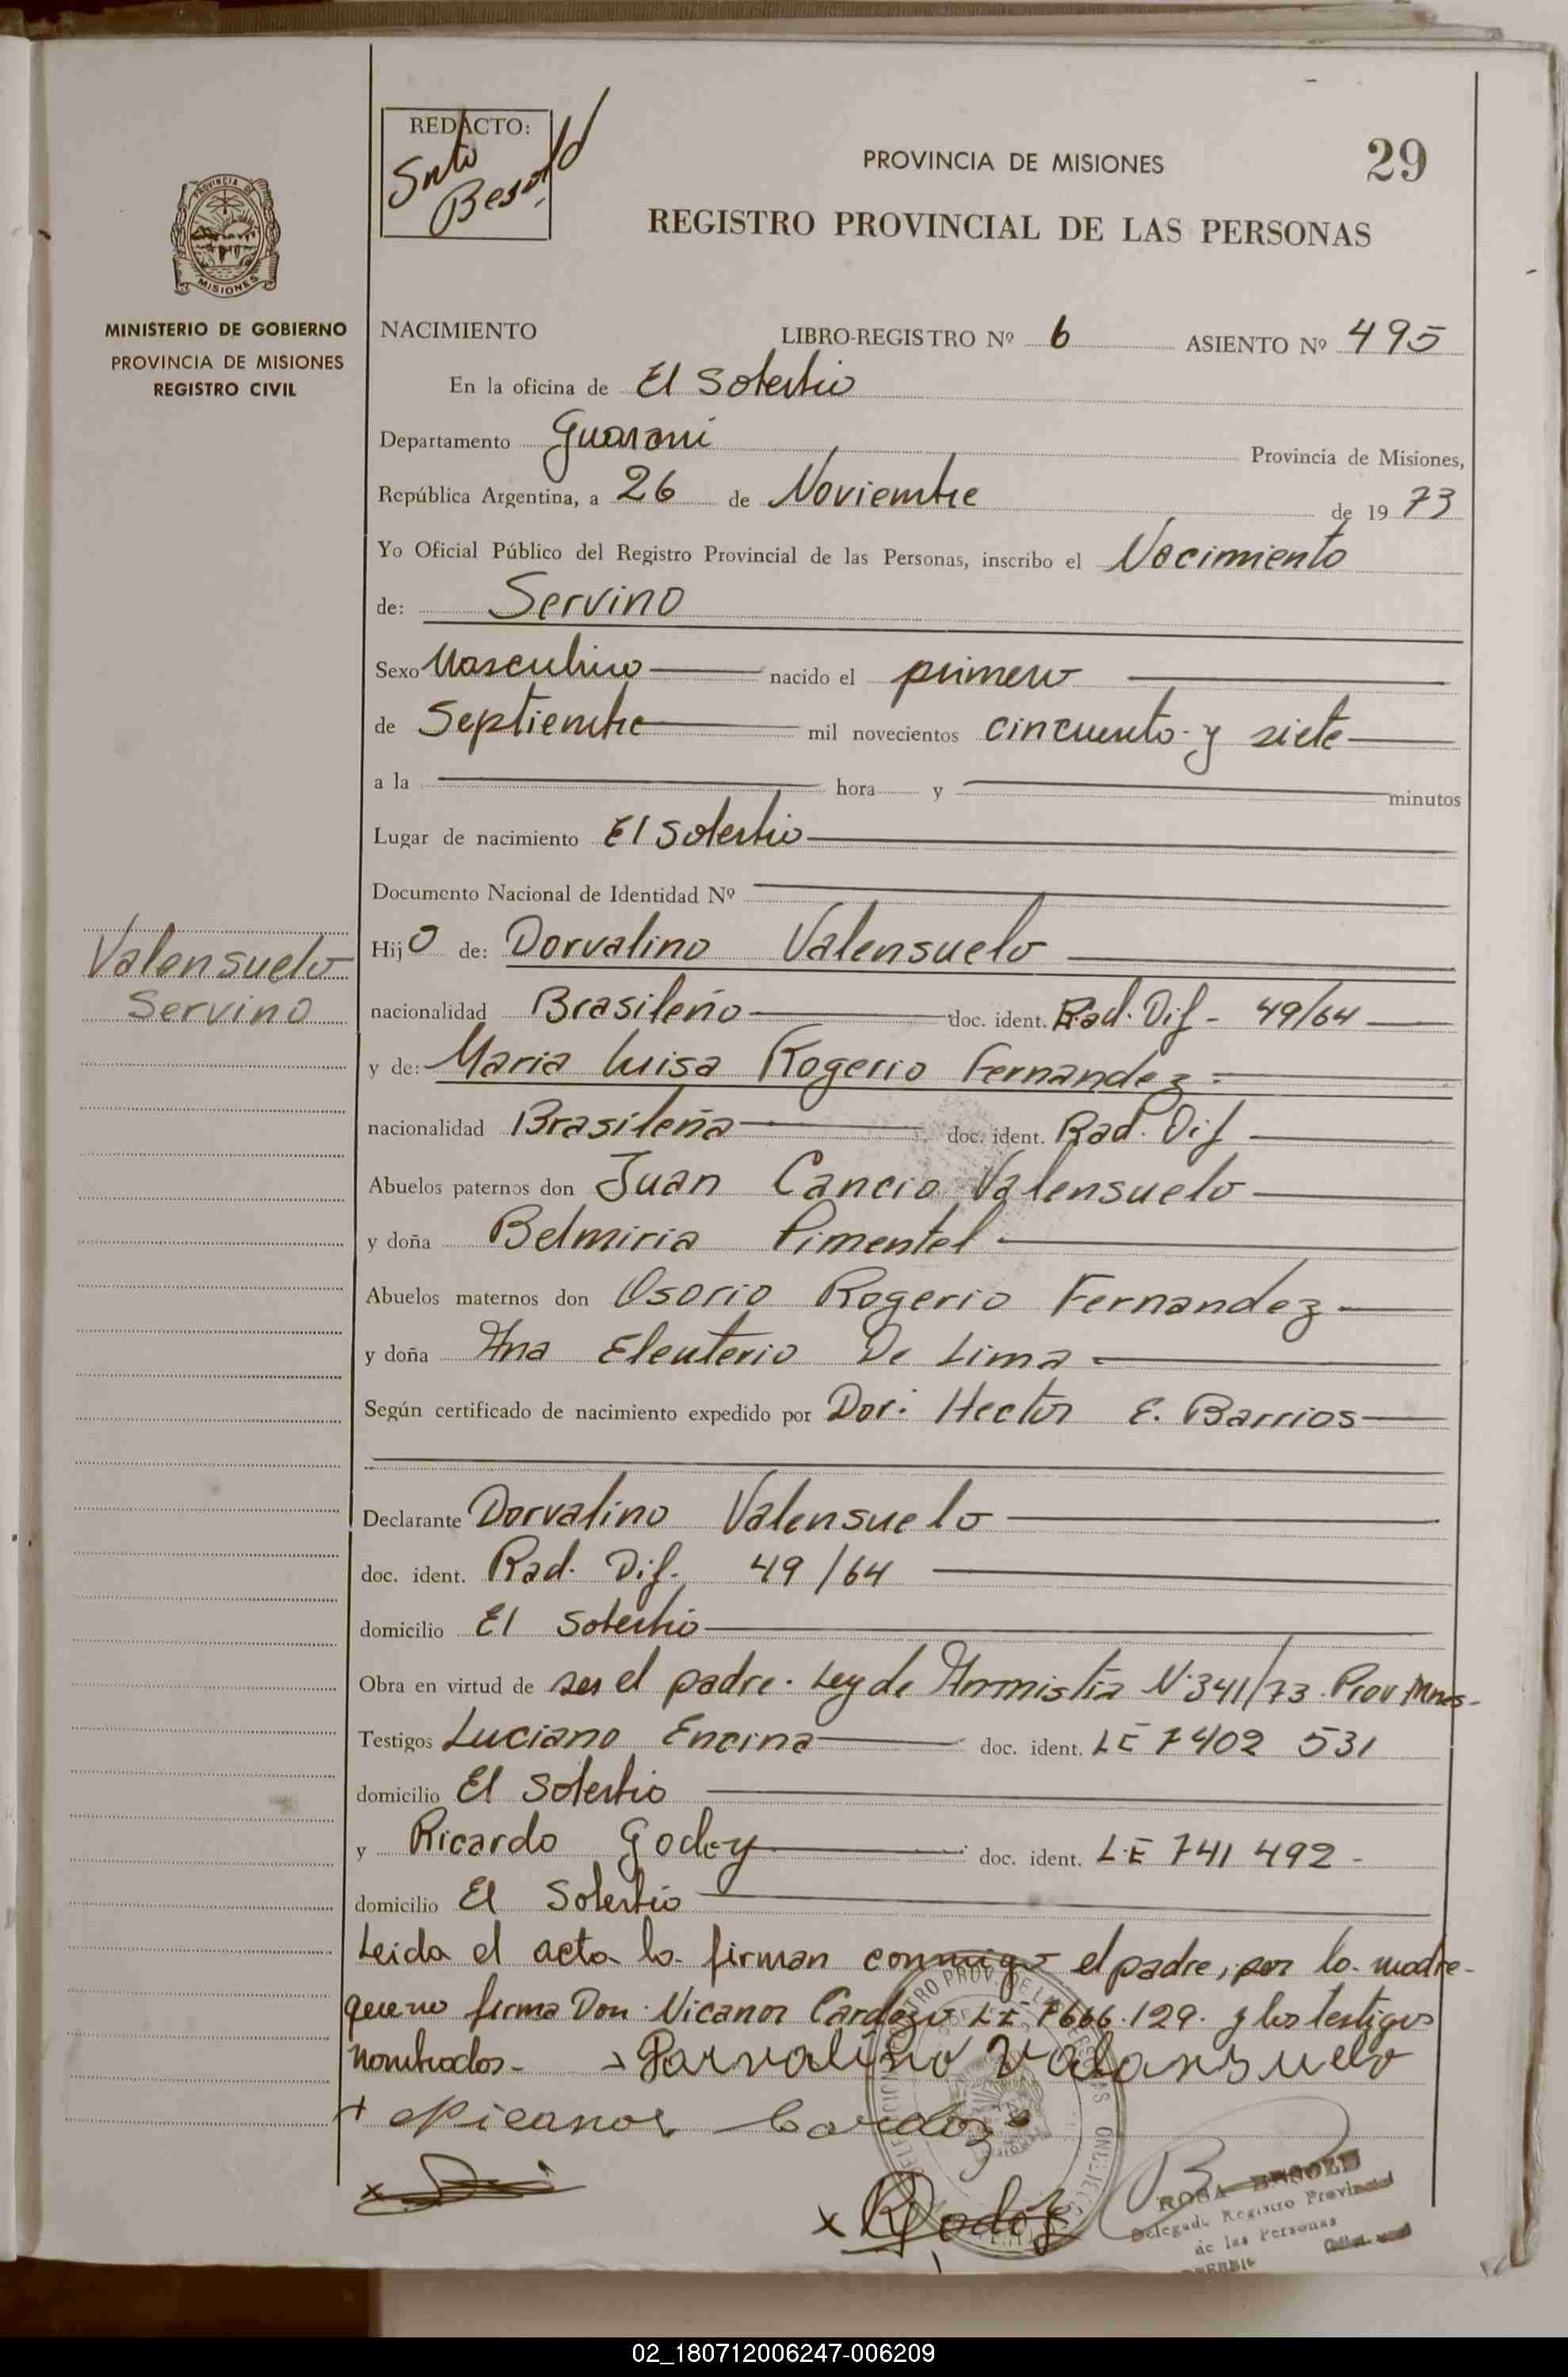 REDACTO:
Besold
PROVINCIA DE MISIONES
29
REGISTRO PROVINCIAL DE LAS PERSONAS
PROVINCIA DE
MISIONES
MINISTERIO DE GOBIERNO
PROVINCIA DE MISIONES
REGISTRO CIVIL
NACIMIENTO LIBRO-REGISTRO Nº 6 ASIENTO Nº 495
En la oficina de El Soberbio
Departamento Guarani Provincia de Misiones,
República Argentina, a 26 de Noviembre de 1973
Yo Oficial Público del Registro Provincial de las Personas, inscribo el Nacimiento
de: Servino
Sexo Masculino nacido el primero
de Septiembre mil novecientos cincuenta y siete
a la hora y minutos
Lugar de nacimiento El Soberbio
Documento Nacional de Identidad Nº
Valensuelo
Servino
Hijo de: Dorvalino Valensuelo
nacionalidad Brasileño doc. ident. Rad. Dif - 49/64
y de: Maria Luisa Rogerio Fernandez
nacionalidad Brasileña doc. ident. Rad. Dif
Abuelos paternos don Juan Cancio Valensuelo
y doña Belmiria Pimentel
Abuelos maternos don Osorio Rogerio Fernandez
y doña Ana Eleuterio De Lima
Según certificado de nacimiento expedido por Dor: Hector E. Barrios
Declarante Dorvalino Valensuelo
doc. ident. Rad. Dif. 49/64
domicilio El Soberbio
Obra en virtud de ser el padre. Ley de Anmistia N.341/73. Prov Mnes-
Testigos Luciano Encina doc. ident. LE 7402 531
domicilio El Soberbio
y Ricardo Godoy doc. ident. L.E 741 492 -
domicilio El Soberbio
Leida el acta la firman conmigo el padre, por la madre-
que no firma Don Nicanor Cardozo LE 7666.129. y los testigos
nombrados- Darvalino Valansuelo
+ Nicanor Cardozo
x
x RGodoy
ROSA BESOLD
Delegada Registro Provincial
de las Personas
02_180712006247-006209